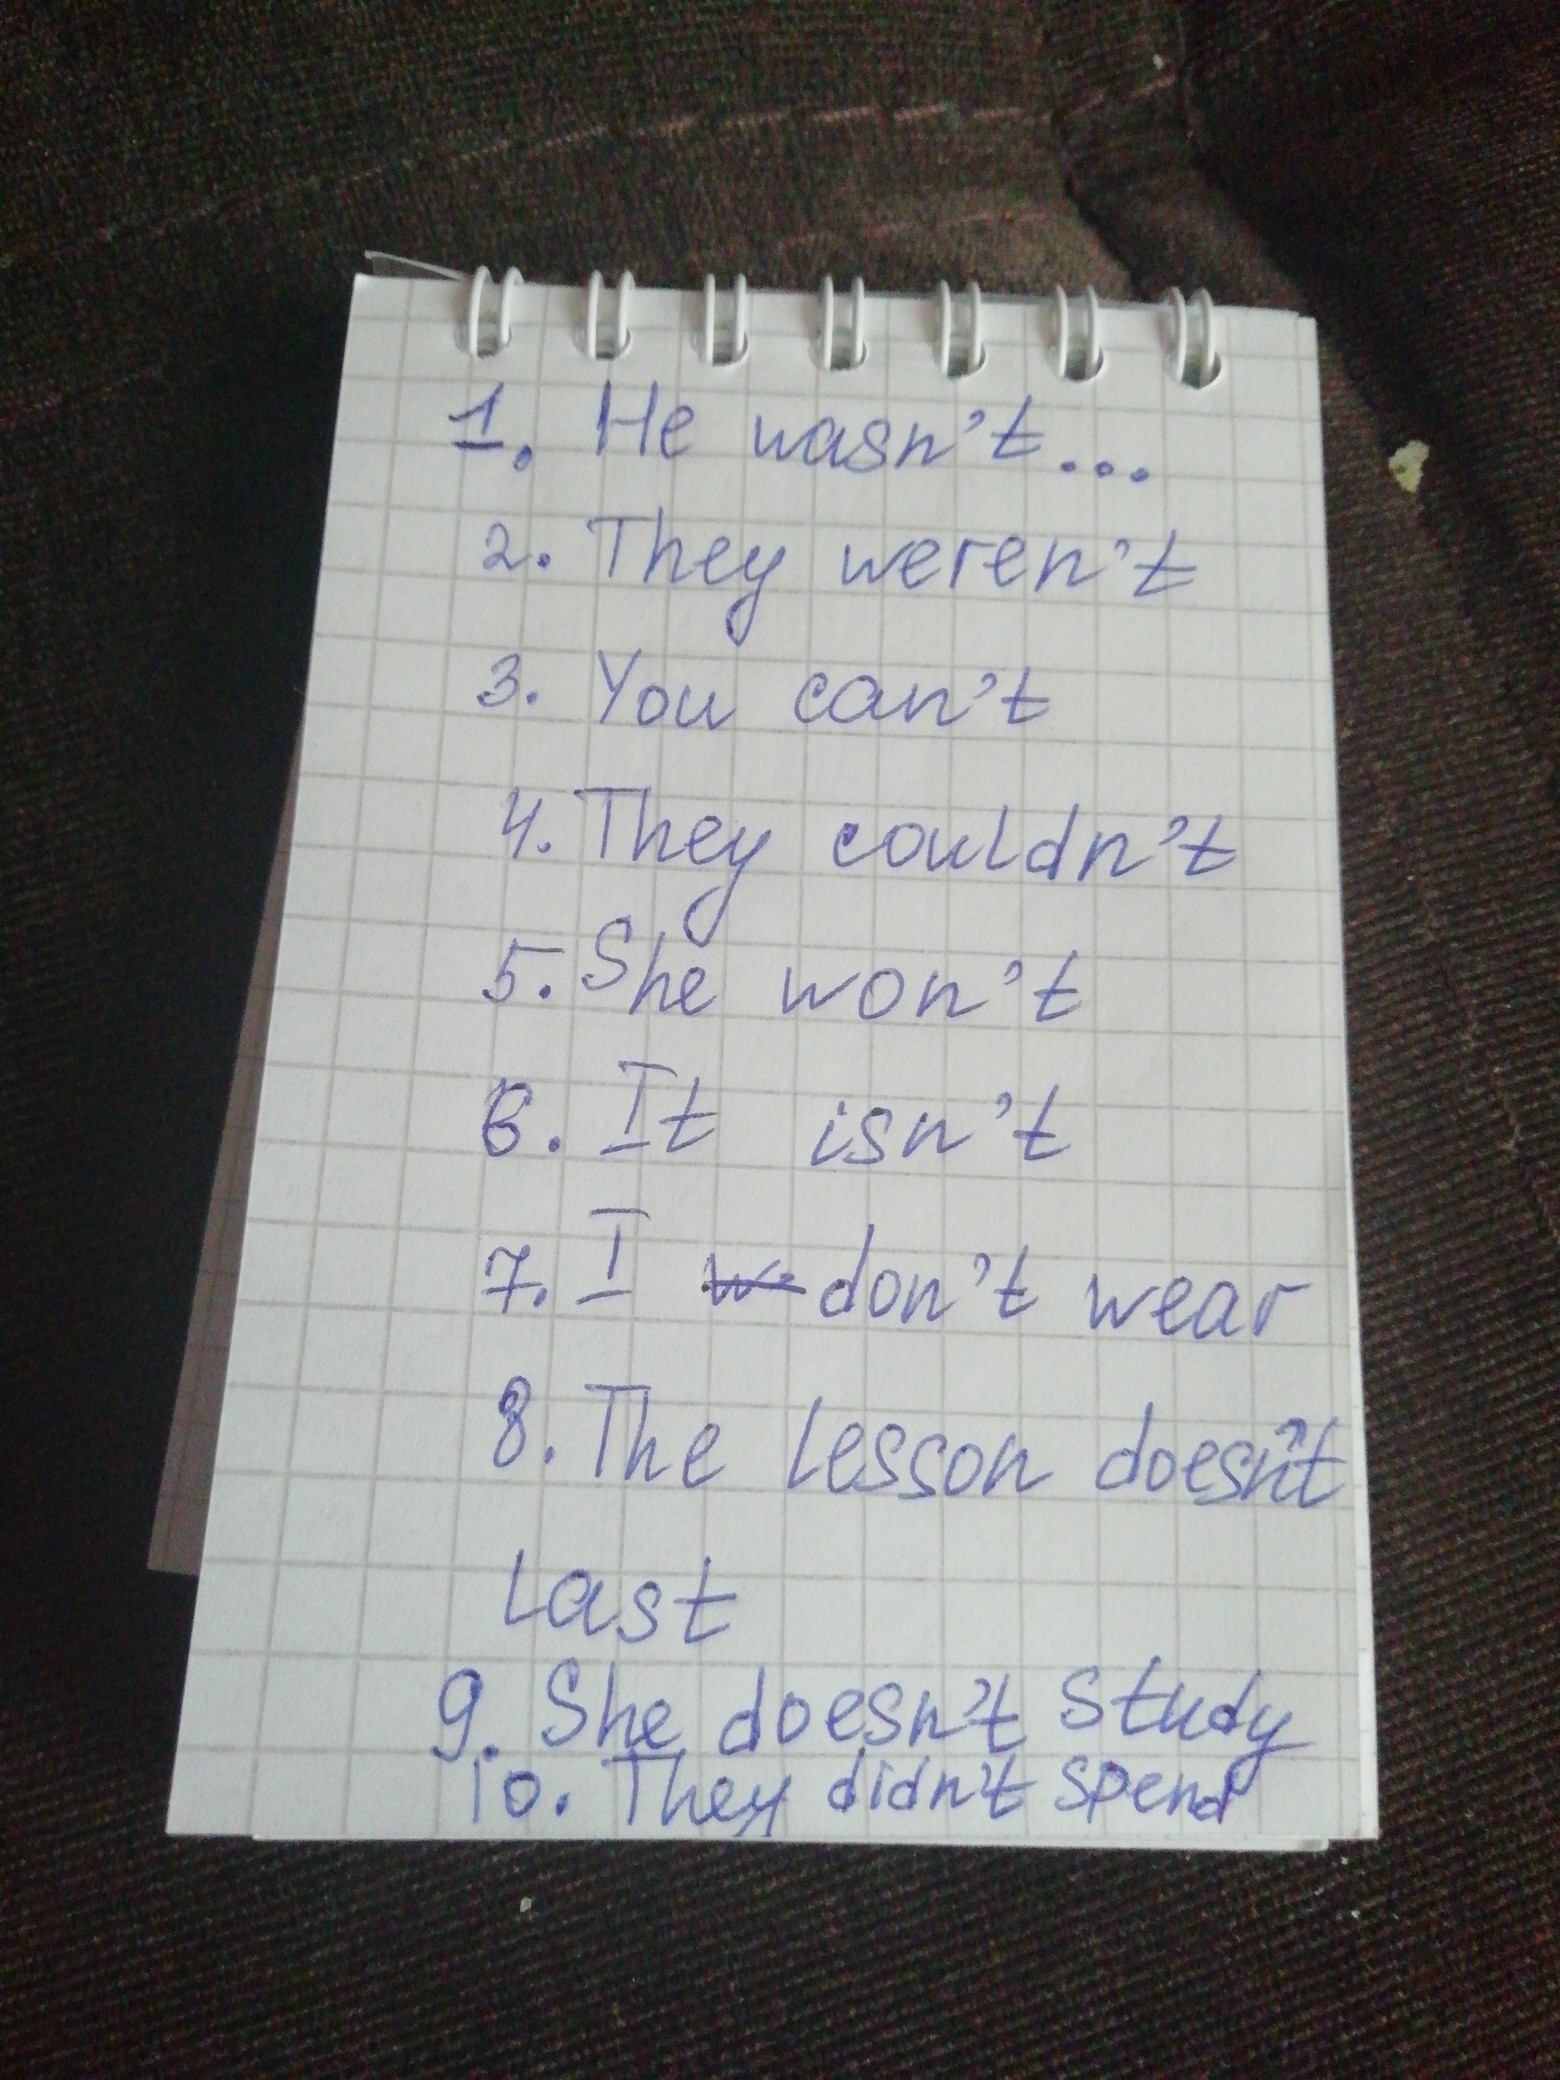 1. He wasn't...
2. They weren't
3. You can't
4. They couldn't
5. She won't
6. It isn't
7. I don't wear
8. The lesson doesn't
last
9. She doesn't study
10. They didn't spend